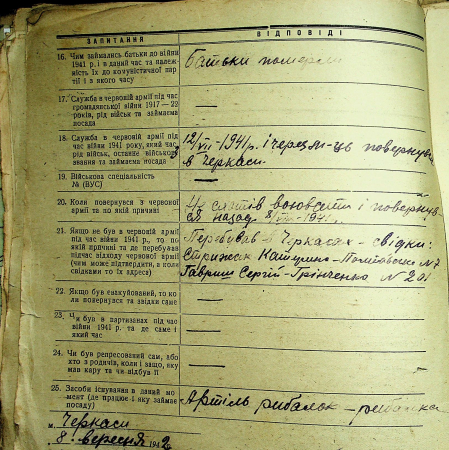 ЗАПИТАННЯ ВІДПОВІДІ
16. Чим займались батьки до війни
1941 р. і в даний час та належ-
ність їх до комуністичної пар-
тії і з якого часу
Батьки померли
17. Служба в червоній армії під час
громадянської війни 1917 — 22
років, рід військ та займаєма
посада
—
18. Служба в червоній армії під
час війни 1941 року, який час,
рід військ, останнє військове
звання та займаєма посада
12/VII-1941 р. і через м-ць повернувся
в Черкаси
19. Військова спеціальність
№ (ВУС)
—
20. Коли повернувся з червоної
армії та по якій причині
воювати і повернув
ся назад 8/VIII-1941 р.
21. Якщо не був в червоній армії
під час війни 1941 р., то по
якій причині та де перебував
під час відходу червоної армії
(чим може підтвердити, в коли
свідками то їх адреса)
Перебував в Черкасах - свідки:
Стрижак Катерина - Полтавська N 7
Гавриш Сергій - Грінченко N 201
22. Якщо був евакуйований, то ко-
ли повернувся та звідки саме
—
23. Чи був в партизанах під час
війни 1941 р. та де саме і
який час
—
24. Чи був репресований сам, або
хто з родичів, коли і защо, яку
мав кару та чи відбув її
—
25. Засоби існування в даний мо-
мент (де працює і яку займає
посаду)
Артіль рибалок - рибалка
м. Черкаси
8. вересня 1942